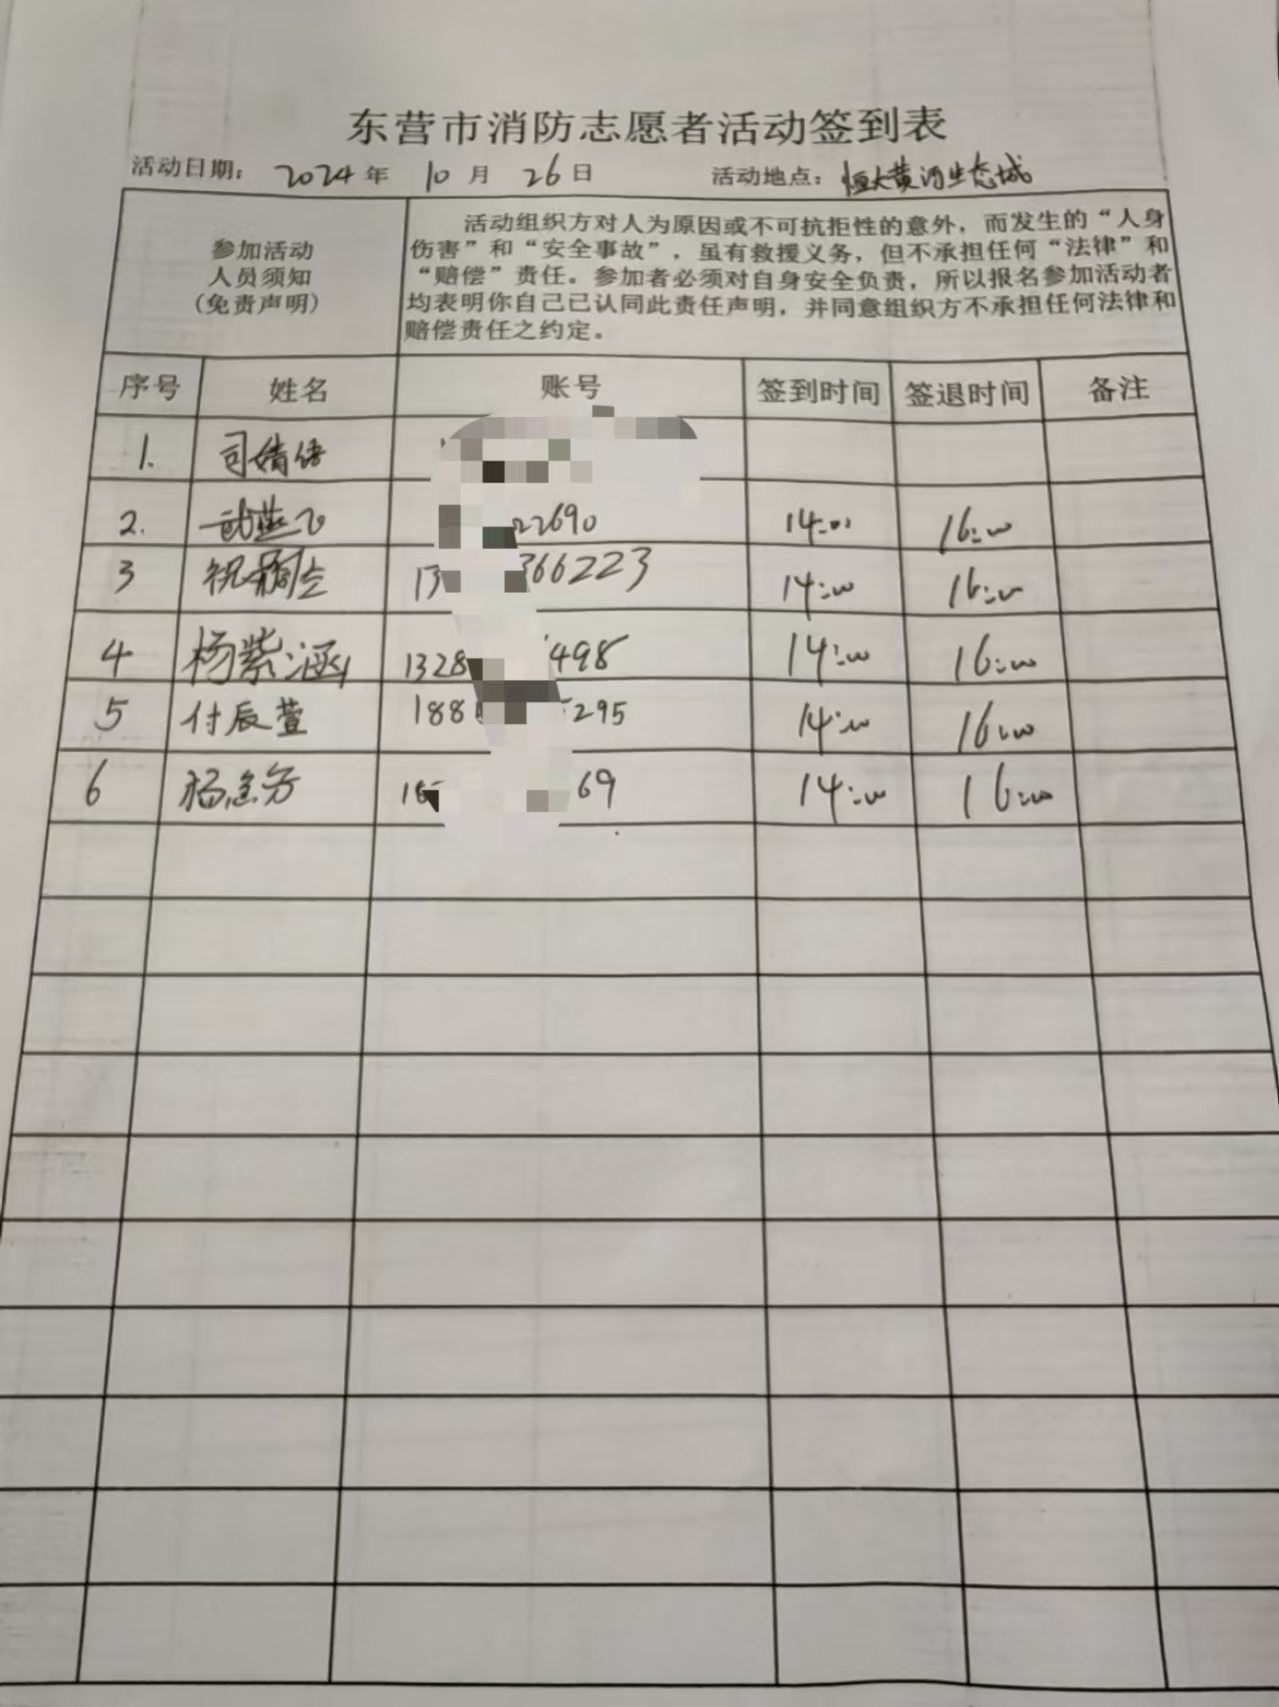 东营市消防志愿者活动签到表
活动日期：2024年 10月 26日 活动地点：恒大黄河生态城
参加活动
人员须知
（免责声明）
活动组织方对人为原因或不可抗拒性的意外，而发生的“人身
伤害”和“安全事故”，虽有救援义务，但不承担任何“法律”和
“赔偿”责任。参加者必须对自身安全负责，所以报名参加活动者
均表明你自己已认同此责任声明，并同意组织方不承担任何法律和
赔偿责任之约定。
序号 姓名 账号 签到时间 签退时间 备注
1. 司婧
2. 22690 14:00 16:00
3 祝 13 366223 14:00 16:00
4 杨紫涵 1328 498 14:00 16:00
5 付辰萱 188 295 14:00 16:00
6 杨 69 14:00 16:00